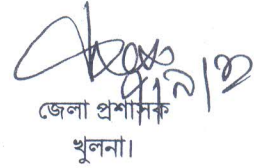 জেলা প্রশাসক
খুলনা।